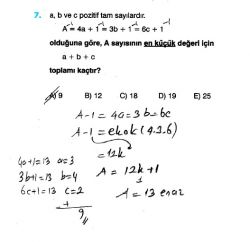 7. a, b ve c pozitif tam sayılardır.
A = 4a + 1 = 3b + 1 = 6c + 1
olduğuna göre, A sayısının en küçük değeri için
a + b + c
toplamı kaçtır?
A) 9 B) 12 C) 18 D) 19 E) 25
A-1 = 4a = 3b = 6c
A-1 = ekok(4.3.6)
= 12k
A = 12k+1
1
A = 13
4a+1=13 a=3
3b+1=13 b=4
6c+1=13 c=2
+
9